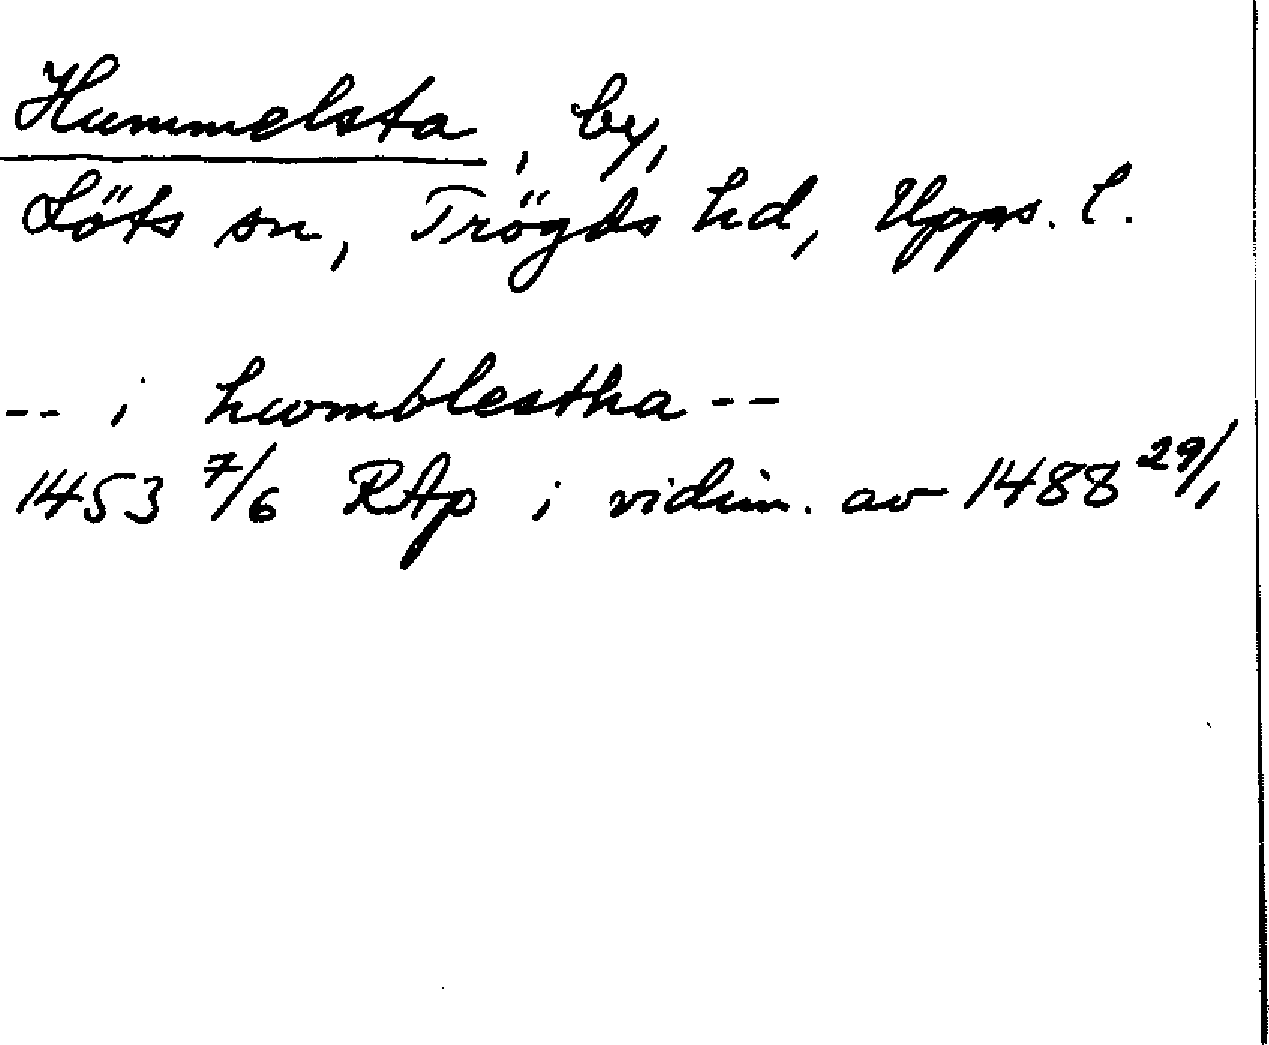 Hummelsta, by,
Löts sn, Trögds hd, Upps. l.
-- i humblestha --
1453 7/6 RAp i vidim. av 1488 29/1